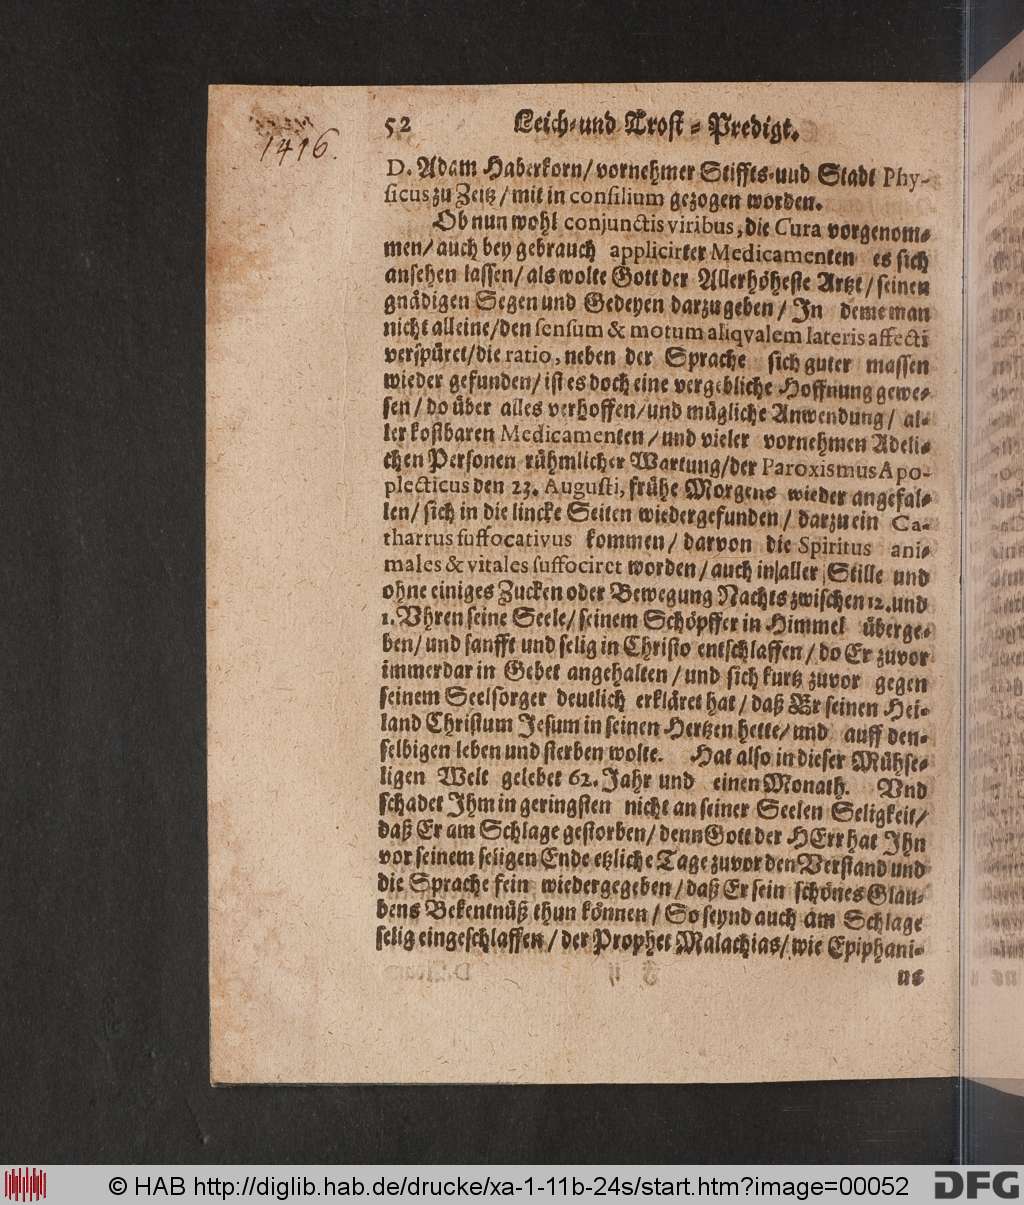 1416.
52 Leich- und Trost-Predigt.
D. Adam Haberkorn/ vornehmer Stiffts-uud Stadt Phy-
sicus zu Zeitz/ mit in consilium gezogen worden.
Ob nun wohl conjunctis viribus, die Cura vorgenom-
men/ auch bey gebrauch applicirter Medicamenten es sich
ansehen lassen/ als wolte Gott der Allerhöheste Artzt/ seinen
gnädigen Segen und Gedeyen darzu geben/ In deme man
nicht alleine/ den sensum & motum aliqvalem lateris affecti
verspüret/ die ratio, neben der Sprache sich guter massen
wieder gefunden/ ist es doch eine vergebliche Hoffnung gewe-
sen/ do über alles verhoffen/ und mügliche Anwendung/ al-
ler kostbaren Medicamenten/ und vieler vornehmen Adeli-
chen Personen rühmlicher Wartung/ der Paroxismus Apo-
plecticus den 23. Augusti, frühe Morgens wieder angefal-
len/ sich in die lincke Seiten wiedergefunden/ darzu ein Ca-
tharrus suffocativus kommen/ darvon die Spiritus ani-
males & vitales suffociret worden/ auch in aller Stille und
ohne einiges Zucken oder Bewegung Nachts zwischen 12. und
1. Vhren seine Seele/ seinem Schöpffer in Himmel überge-
ben/ und sanfft und selig in Christo entschlaffen/ do Er zuvor
immerdar in Gebet angehalten/ und sich kurtz zuvor gegen
seinem Seelsorger deutlich erkläret hat/ daß Er seinen Hei-
land Christum Jesum in seinen Hertzen hette/ und auff den-
selbigen leben und sterben wolte. Hat also in dieser Mühse-
ligen Welt gelebet 62. Jahr und einen Monath. Vnd
schadet Ihm in geringsten nicht an seiner Seelen Seligkeit/
daß Er am Schlage gestorben/ denn Gott der HErr hat Ihn
vor seinem seligen Ende etzliche Tage zuvor den Verstand und
die Sprache fein wiedergegeben/ daß Er sein schönes Glau-
bens Bekentnüß thun können/ So seynd auch am Schlage
selig eingeschlaffen/ der Prophet Malachias/ wie Epiphani-
us
© HAB http://diglib.hab.de/drucke/xa-1-11b-24s/start.htm?image=00052
DFG